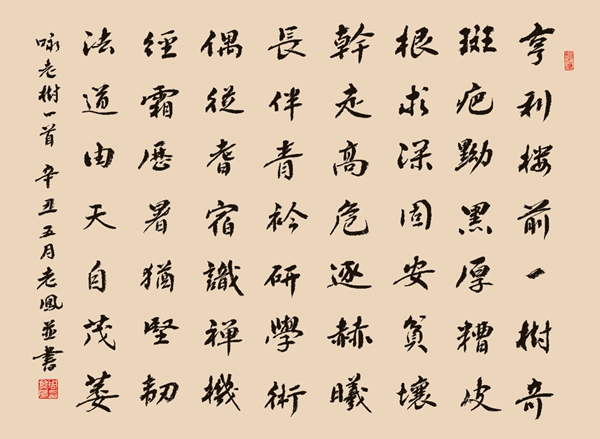 亨利楼前一樹奇
斑疤黝黑厚糟皮
根求深固安貧壤
幹走高危逐赫曦
長伴青衿研學術
偶從耆宿識禪機
經霜歷暑猶堅韌
法道由天自茂萎
咏老樹一首 辛丑五月老鳳並書